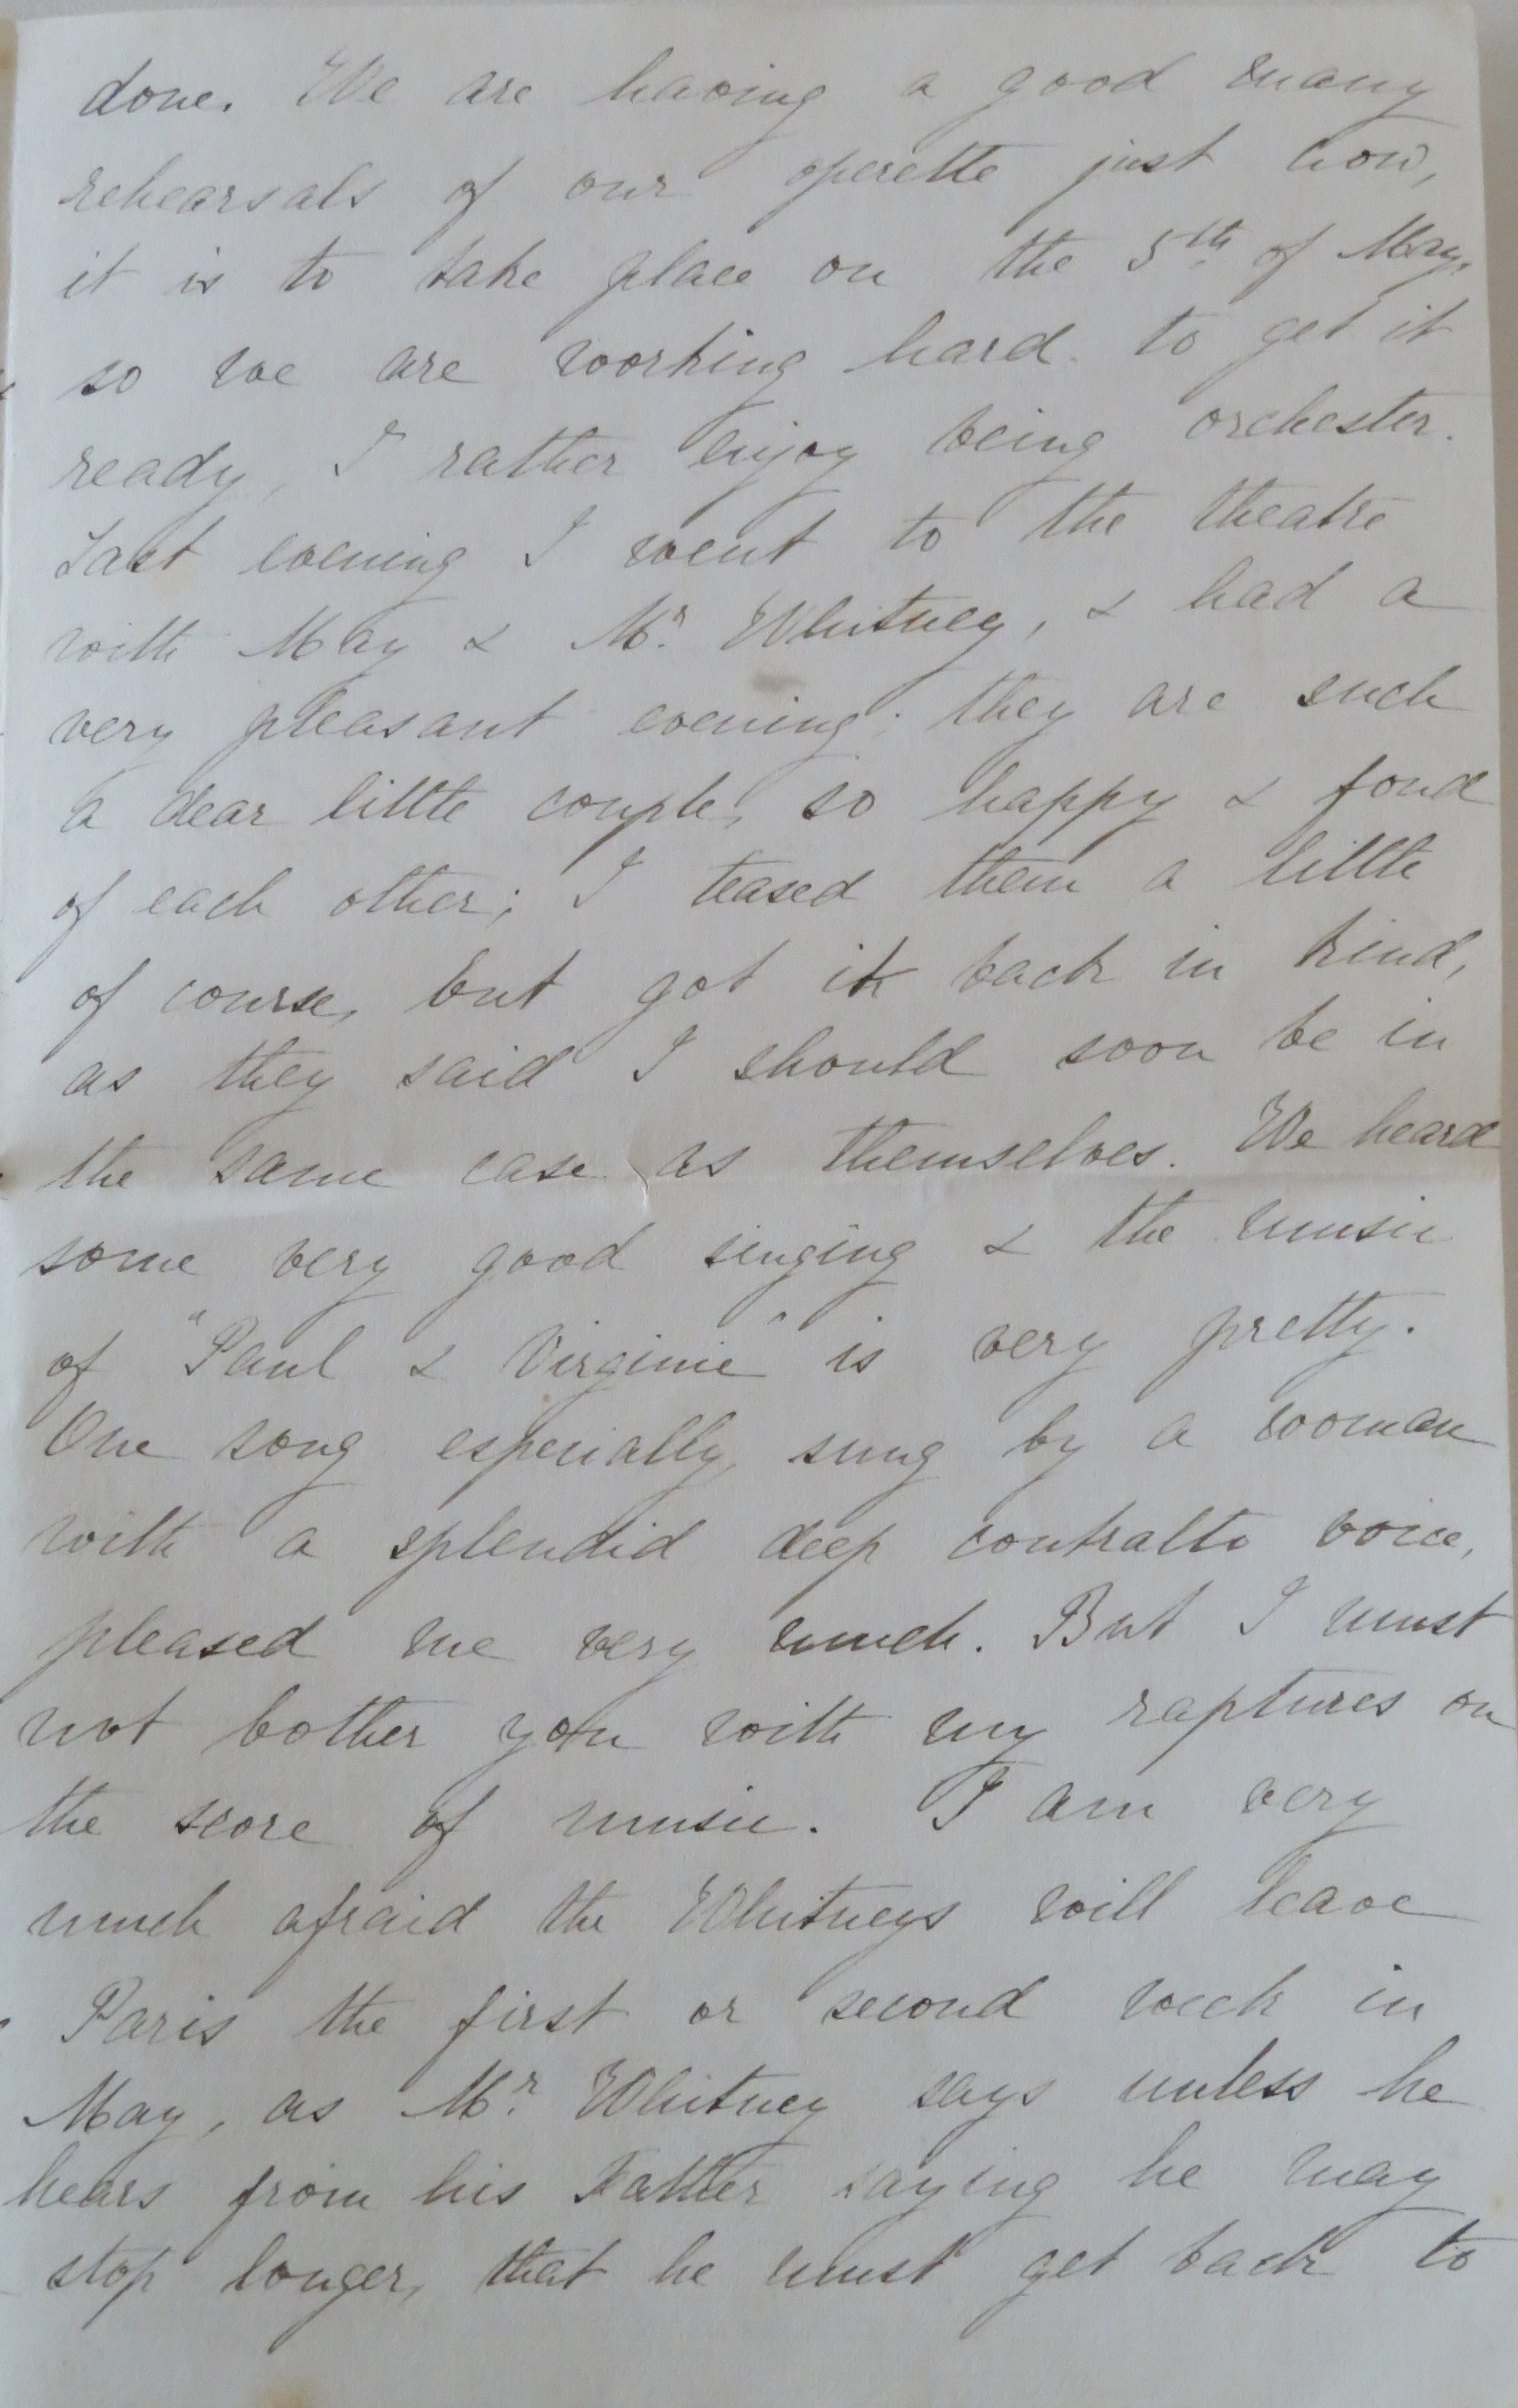 done. We are having a good many
rehearsals of our operette just now,
it is to take place on the 5th of May,
so we are working hard to get it
ready, I rather enjoy being orchester.
Last evening I went to the theatre
with May & Mr. Whitney, & had a
very pleasant evening; they are such
a dear little couple, so happy & fond
of each other; I teased them a little
of course, but got it back in kind,
as they said I should soon be in
the same case as themselves. We heard
some very good singing & the music
of "Paul & Virginie" is very pretty.
One song especially, sung by a woman
with a splendid deep contralto voice,
pleased me very much. But I must
not bother you with my raptures on
the score of music. I am very
much afraid the Whitneys will leave
Paris the first or second week in
May, as Mr. Whitney says unless he
hears from his Father saying he may
stop longer, that he must get back to